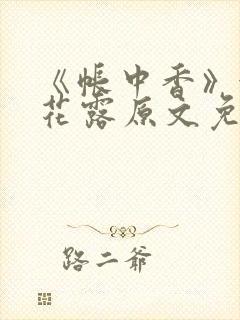 《帐中香》
花露原文免
路二爷